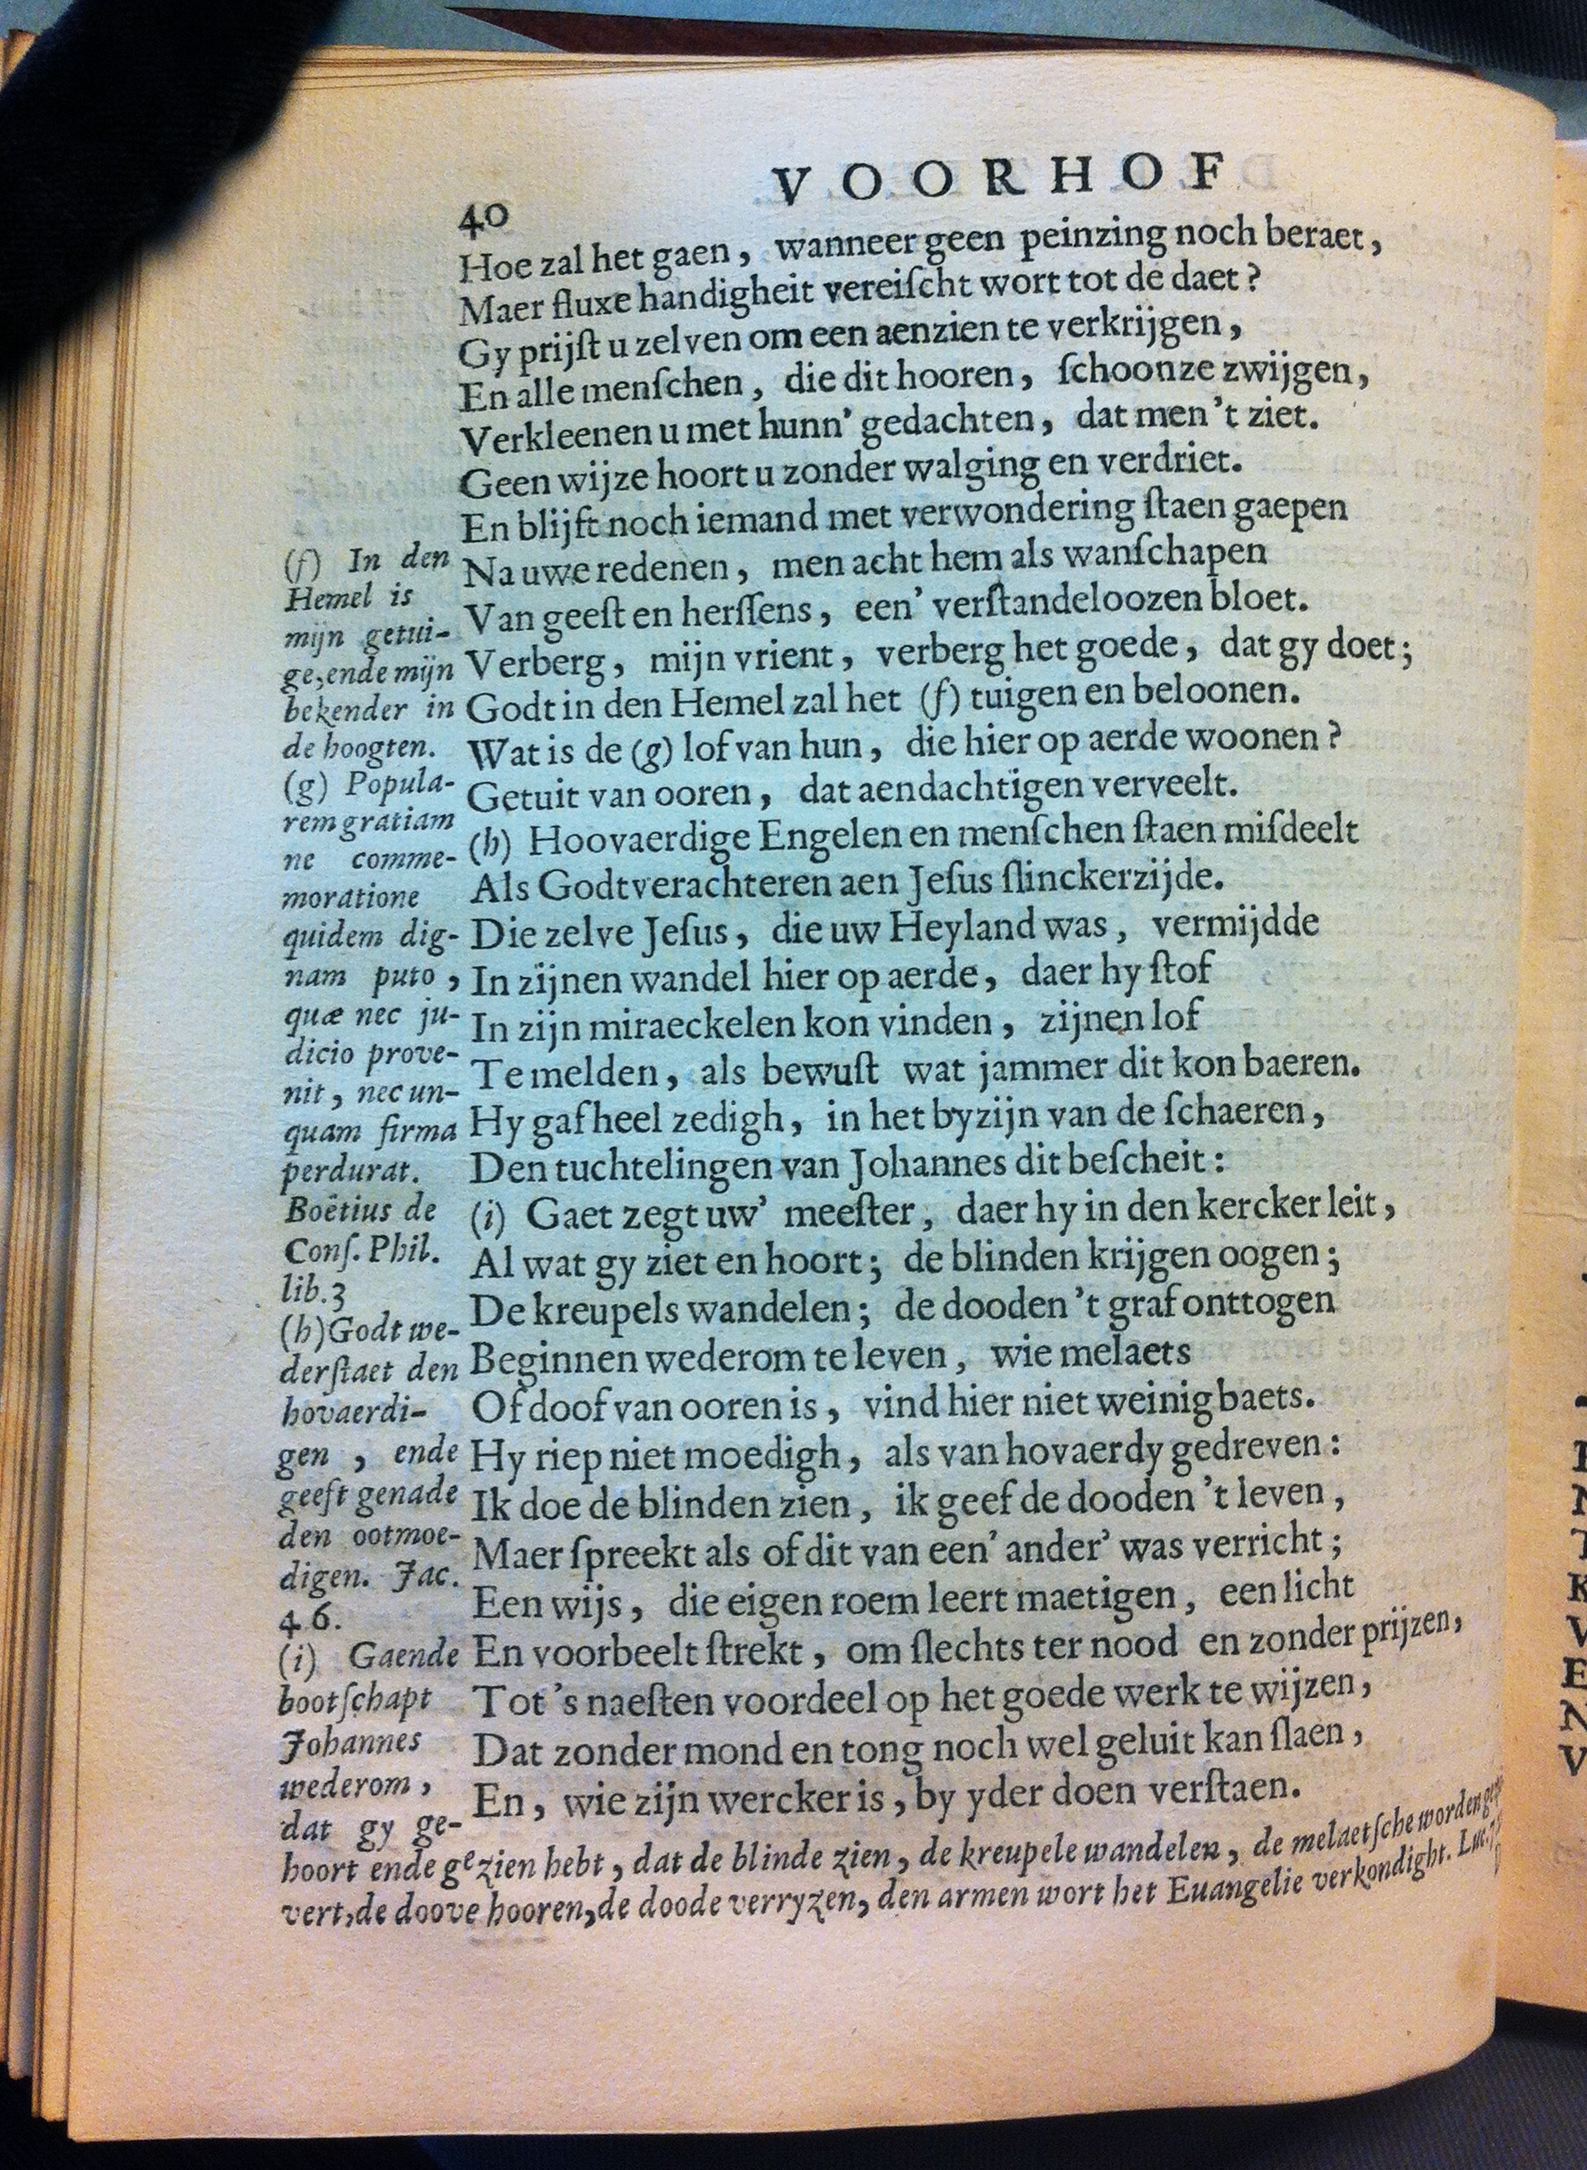 40
VOORHOF
Hoe zal het gaen, wanneer geen peinzing noch beraet,
Maer fluxe handigheit vereiſcht wort tot de daet?
Gy prijſt u zelven om een aenzien te verkrijgen,
En alle menſchen, die dit hooren, ſchoonze zwijgen,
Verkleenen u met hunn' gedachten, dat men 't ziet.
Geen wijze hoort u zonder walging en verdriet.
En blijft noch iemand met verwondering ſtaen gaepen
Na uwe redenen, men acht hem als wanſchapen
Van geeſt en herſſens, een' verſtandeloozen bloet.
Verberg, mijn vrient, verberg het goede, dat gy doet;
Godt in den Hemel zal het (f) tuigen en beloonen.
Wat is de (g) lof van hun, die hier op aerde woonen?
Getuit van ooren, dat aendachtigen verveelt.
(h) Hoovaerdige Engelen en menſchen ſtaen miſdeelt
Als Godtverachteren aen Jeſus ſlinckerzijde.
Die zelve Jeſus, die uw Heyland was, vermijdde
In zijnen wandel hier op aerde, daer hy ſtof
In zijn miraeckelen kon vinden, zijnen lof
Te melden, als bewuſt wat jammer dit kon baeren.
Hy gaf heel zedigh, in het byzijn van de ſchaeren,
Den tuchtelingen van Johannes dit beſcheit:
(i) Gaet zegt uw' meeſter, daer hy in den kercker leit,
Al wat gy ziet en hoort; de blinden krijgen oogen;
De kreupels wandelen; de dooden 't graf onttogen
Beginnen wederom te leven, wie melaets
Of doof van ooren is, vind hier niet weinig baets.
Hy riep niet moedigh, als van hovaerdy gedreven:
Ik doe de blinden zien, ik geef de dooden 't leven,
Maer ſpreekt als of dit van een' ander' was verricht;
Een wijs, die eigen roem leert maetigen, een licht
En voorbeelt ſtrekt, om ſlechts ter nood en zonder prijzen,
Tot 's naeſten voordeel op het goede werk te wijzen,
Dat zonder mond en tong noch wel geluit kan ſlaen,
En, wie zijn wercker is, by yder doen verſtaen.
(f) In den
Hemel is
mijn getui-
ge, ende mijn
bekender in
de hoogten.
(g) Popula-
rem gratiam
ne comme-
moratione
quidem dig-
nam puto,
quæ nec ju-
dicio prove-
nit, nec un-
quam firma
perdurat.
Boëtius de
Conſ. Phil.
lib. 3
(h) Godt we-
derſtaet den
hovaerdi-
gen, ende
geeft genade
den ootmoe-
digen. Jac.
4 6.
(i) Gaende
bootſchapt
Johannes
wederom,
dat gy ge-
hoort ende gezien hebt, dat de blinde zien, de kreupele wandelen, de melaetſche worden
vert, de doove hooren, de doode verryzen, den armen wort het Euangelie verkondight. Luc.